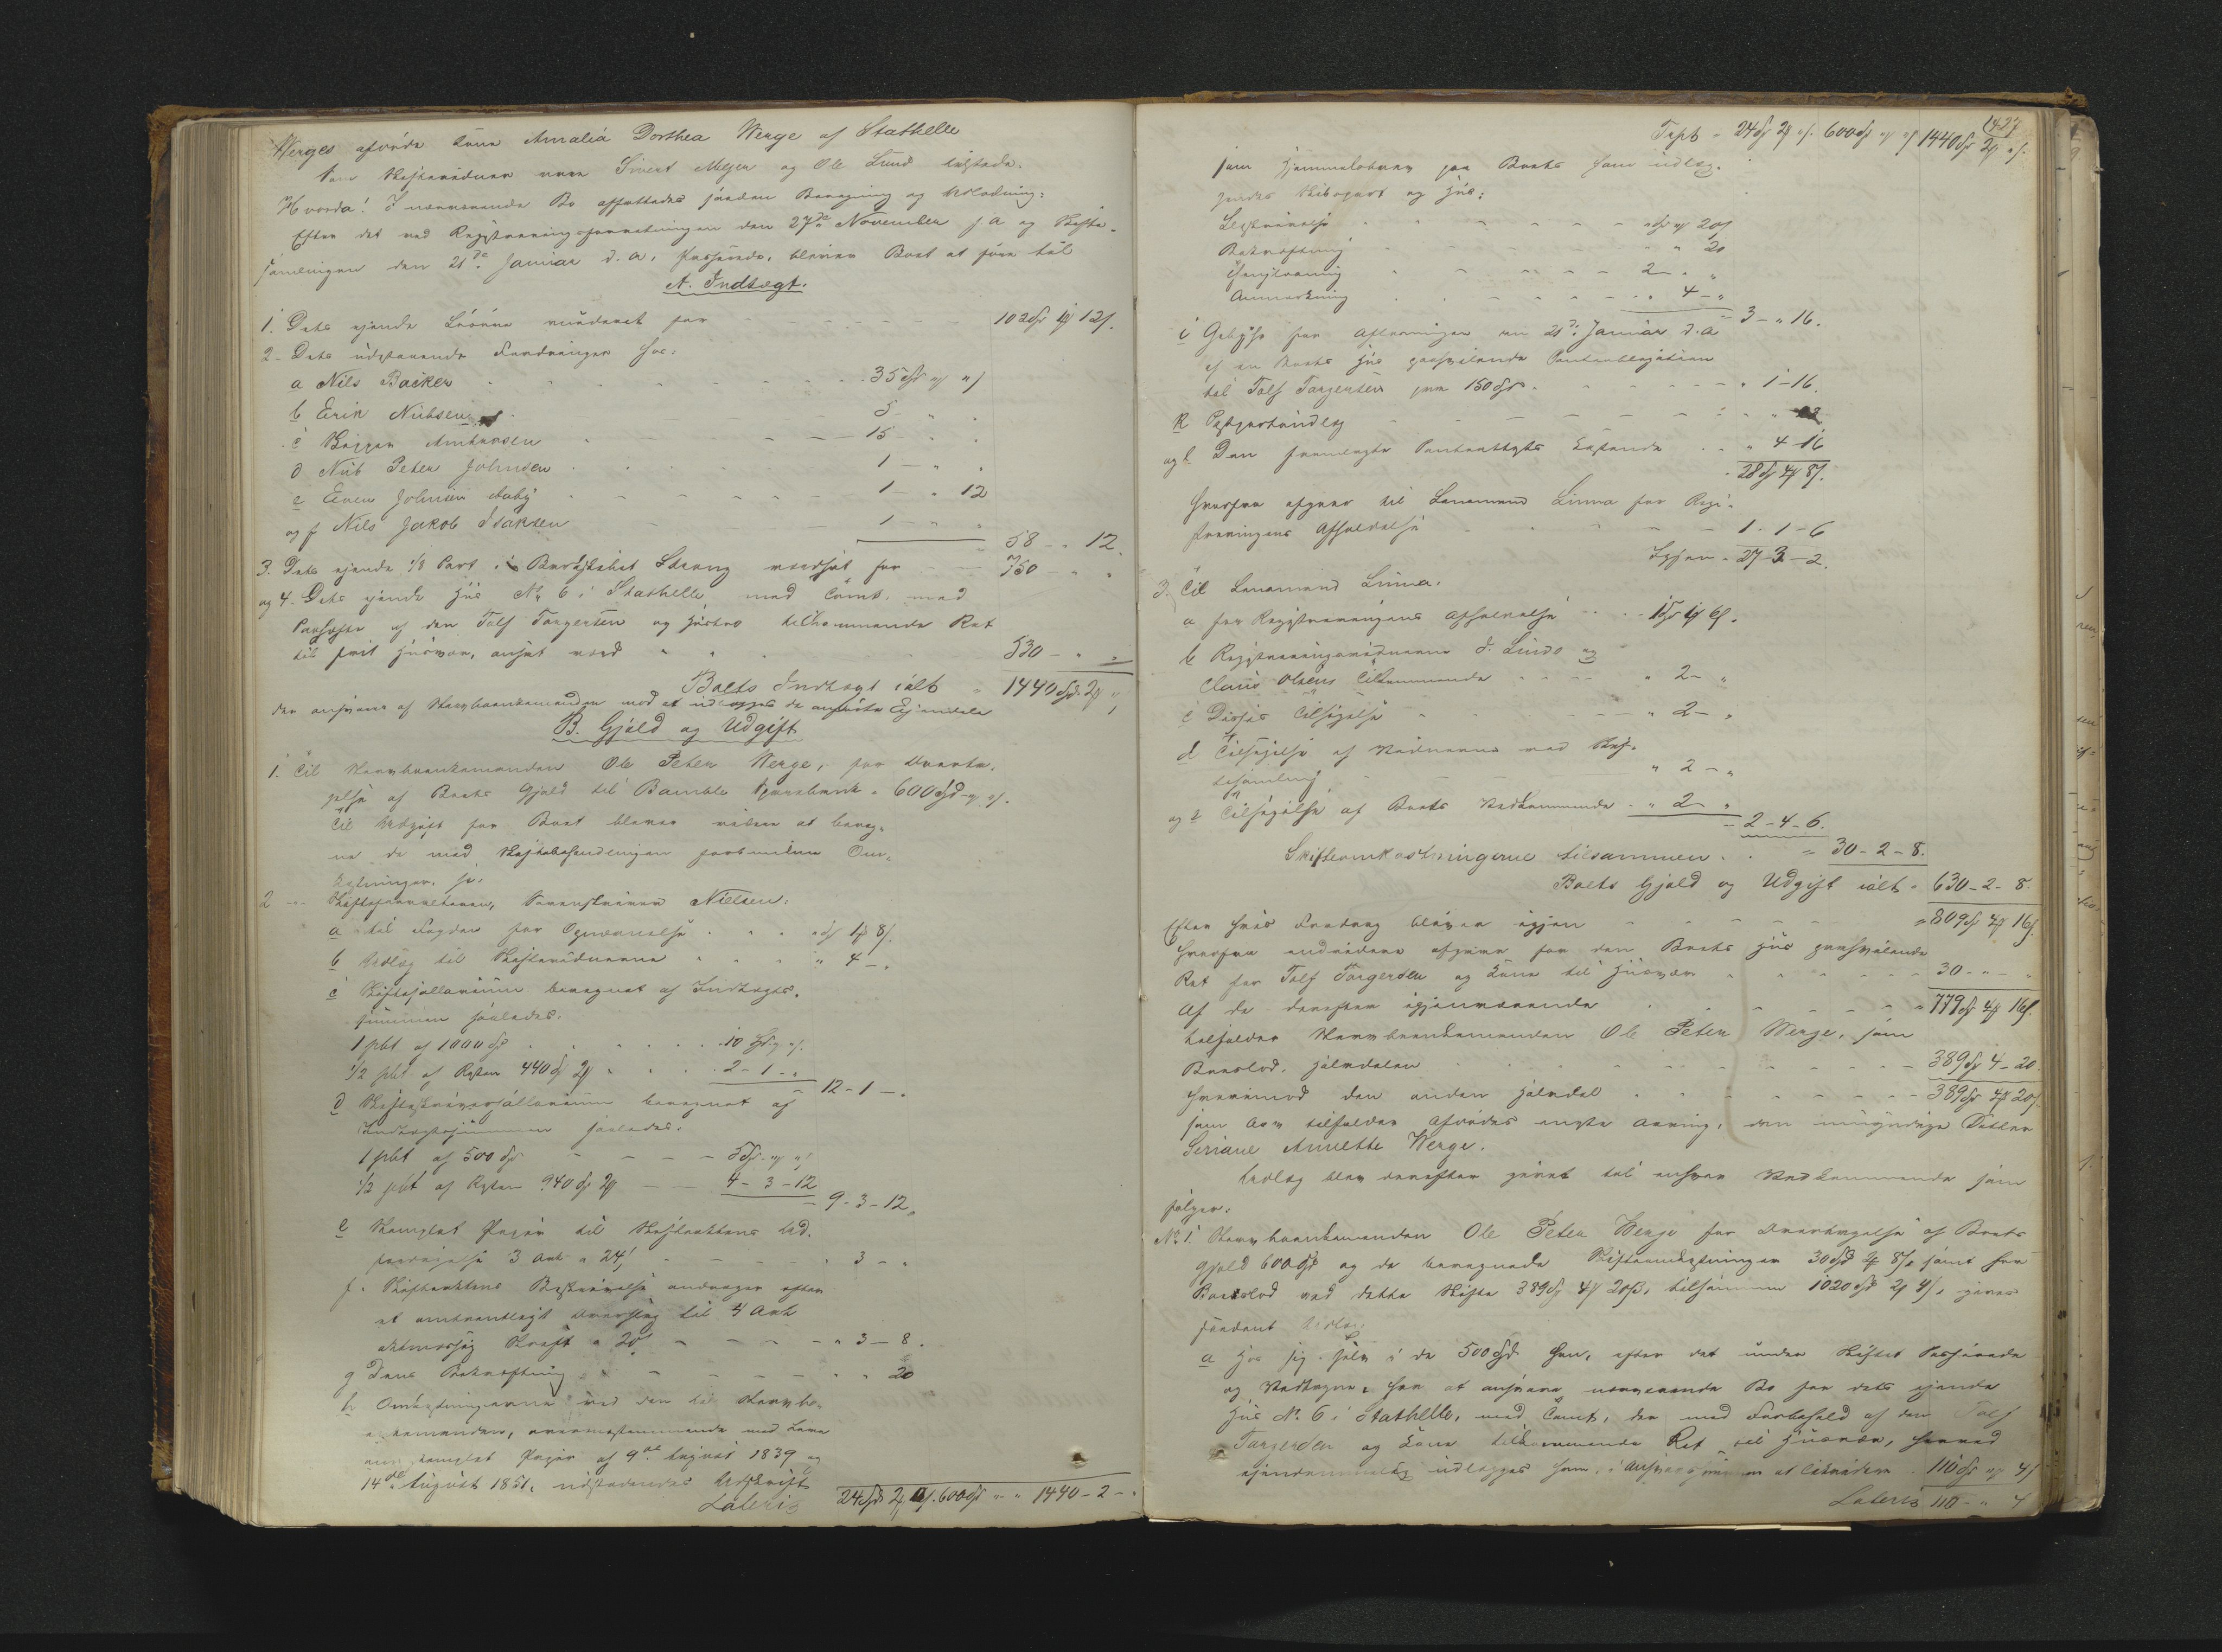 Werges afdøde Kone Amalia Dorthea Werge af Stathelle
Som Skiftevidner vare Sivert Meyer og Ole Lund tilstede.
Hvorda! I nærværende Bo affattedes saadan Beregning og Udlodning:
Efter det ved Registreringsforretningen den 27de November f. A. og Skifte-
samlingen den 21de Januar d. A. passerede, bliver Boet at føre til
A. Indtægt.
1. Dets eiende Løsøre vurderet for 102 Spd 1 ₰ 12 s.
2. Dets udestaaende Fordringer hos:
a Nils Backer 35 Spd " "
b Erik Nubsen 5 " "
c Skipper Amberssen 15 " "
d Nub Peter Johnsen 1 " "
e Even Johnsen Aaby 1 " 12
og f Nils Jakob Isaksen 1 " "
58 " 12.
3. Dets eiende 1/8 Part i Barkskibet Strong værdsat for 750 " "
og 4. Dets eiende Huus No 6 i Stathelle med Tomt, med
Paahefte af den Tolf Torgersen og Hustro tilkommende Ret
til frit Huusvær, anseet værd 530 " "
Boets Indtægt ialt 1440 Spd. 2 ₰ "
der ansvares af Stervboenkemanden mod at udlægges de anførte Eiendele
B. Gjæld og Udgift
1. Til Stervboenkemanden Ole Peter Werge, for Overta-
gelse af Boets Gjæld til Bamble Sparebank 600 Spd " "
Til Udgift for Boet bliver videre at bereg-
ne de med Skiftebehandlingen forbundne Om-
kostninger, som:
2 Skifteforvalteren, Sorenskriver Nielsen:
a til Fogden for Opnævnelse " 1 ₰ 8 s.
b Udlæg til Skiftevidnerne " 4 - "
c Skiftesallarium beregnet af Indtægts-
summen saaledes:
1 pCt af 1000 Spd 10 Spd " "
1/2 pCt af Resten 440 Spd 2 ₰ 2 - 1 - "
12 - 1 - "
d Skifteskriversallarium beregnet af
Indtægtssummen saaledes:
1 pCt af 500 Spd 5 Spd " "
1/2 pCt af Resten 940 Spd 2 ₰ 4 - 3 - 12
9 - 3 - 12.
e Stemplet Papir til Skifteaktens Ud-
færdigelse 3 Ark a 24 s 3 - "
f. Skifteaktens Beskrivelse andrager efter
et omtrentligt Overslag til 4 Ark
a 20 " 3 - 8.
g Dens Bekræftning " " 20
h Omkostningerne ved den til Stervbo-
enkemanden, overensstemmende med Lov
om stemplet Papir af 9de August 1839 og
14de August 1851, udstedendes Udskrift
Lateris 24 Spd 2 ₰ " 600 Spd " " 1440 - 2 - "
427
Trpt 24 Spd 2 ₰ " 600 Spd " " 1440 Spd 2 ₰ "
som Hjemmelsbrev paa Boets ham udlæg-
gendes Skibspart og Huus:
Beskrivelse " " 20 s
Bekræftning " " 20
Thinglæsning 2 - "
Anmærkning " 4 - "
3 - " 16.
i Gebyhr for Aflysningen en 21de Januar d. A
af en Boets Huus paahvilende Panteobligation
til Tolf Torgersen paa 150 Spd " 1 - 16.
k Postportoudlæg
og l Den fremlagte Panteattests Løsende " 4 - 16
28 Spd 4 ₰ 8 s.
Hvorfra afgaaer til Lensmand Linna for Regi-
streringens Afholdelse 1 - 1 - 6
Igjen 27 - 3 - 2.
3. Til Lensmand Linna.
a for Registreringens Afholdelse 1 Spd 1 ₰ 6 s.
b Registreringsvidnerne J. Linds og
Claus Olsens Tilkommende " 2 - "
c Disses Tilsigelse " 2 - "
d Tilsigelse af Vidnerne ved Skif-
tesamling " 2 - "
og e Tilsigelse af Boets Vedkommende " 2 "
2 - 4 - 6.
Skifteomkostningerne tilsammen 30 - 2 - 8.
Boets Gjæld og Udgift ialt 630 - 2 - 8.
Efter hvis Fradrag bliver igjen 809 Spd 4 ₰ 16 s.
Hvorfra endvidere afgaaer for den Boets Huus paahvilende
Ret for Tolf Torgersen og Kone til Huusvær 30 " "
Af de derefter igjenværende 779 Spd 4 ₰ 16 s.
tilfalder Stervboenkemanden Ole Peter Werge, som
Boeslod, Halvdelen 389 Spd 4 - 20.
Hvorimod den anden Halvdel 389 Spd 4 ₰ 20 s.
som Arv tilfalder Afdødes eneste Arving, den umyndige Datter
Seriane Annette Werge.
Udlæg blev derefter gjort til enhver Vedkommende som
følger:
No 1. Stervboenkemanden Ole Peter Werge for Overtagelse af Boets
Gjæld 600 Spd og de beregnede Skifteomkostninger 30 Spd 2 ₰ 8 s, samt for
Boeslod ved dette Skifte 389 Spd 4 ₰ 20 s, tilsammen 1020 Spd 2 ₰ 4 s, gives
saadant Udlæg:
a Hos sig selv i de 500 Spd han, efter det under Skiftet Passerede
og Vedtagne, har at ansvare nærværende Bo for dets eiende
Huus No. 6 i Stathelle, med Tomt, der med Forbehold af den Tolf
Torgersen og Kone tilkommende Ret til Huusvær, herved
eiendommelig udlægges ham, i Ansvarssummen at likvidere 110 Spd " 4 s
Lateris 110 - " 4